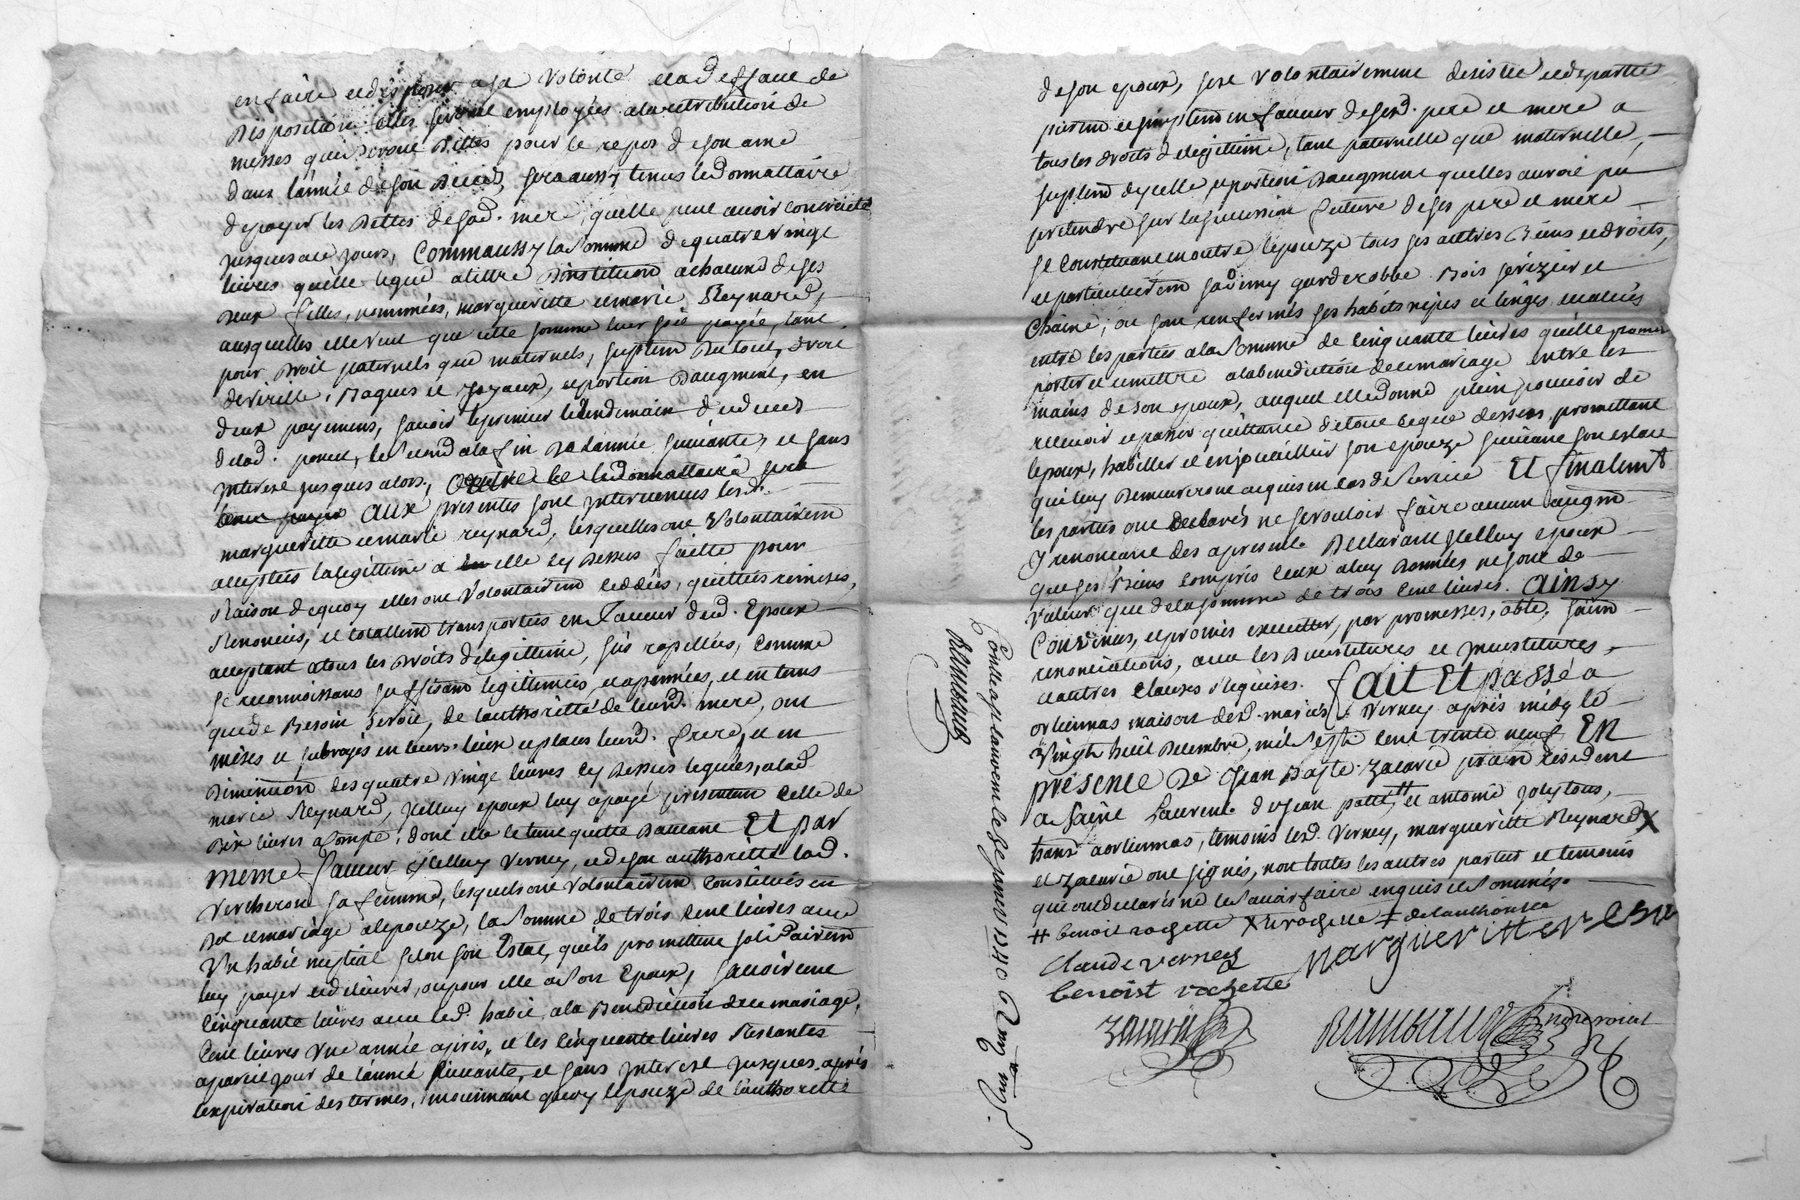 en faire et disposer a sa volonté et a deffaut de
Disposition elles seront employées a la retribution de
messes qui seront Dittes pour le repos de son ame
dans lannée de son Decéd, sera aussy tenus led donnattaire
de payer les Dettes de sad. mere quelle peut avoir contractés
jusques a ce jour, Comme aussy la Somme de quatre vingt
livres quelle legue a tittre Dinstitution a chacune de ses
deux filles, nommées, margueritte et marie Reynard,
ausquelles elle veut que cette somme leur soit payée, tant
pour Droit paternels que maternels, supplem Du tout, droit
de virille, Bagues et Joyaux, et portion Daugment, en
deux payemens, savoir le premier le lendemain du deced
de lad. , le second a la fin De lannée suivante, et sans
interest jusques alors,
aux presentes sont intervenues lesd.
margueritte et marie reynard, lesquelles ont Volontairem
acceptées la legittime a elle cy Dessus faitte pour
Raison de quoy elles ont Volontairem ceddées, quittées remises,
Renoncées, et totallem transportées en faveur dud. Epoux
acceptant a tous les Droits de legittime, sus rapellées, Comme
se reconnoissans suffisam legittimées et apanées, et en tems
que de Besoin seroit, de lauthorité de leurd. mere, ont
mises et subrogés en leurs lieux et places leurd. frere, et en
Diminution des quatre vingt livres cy Dessus leguées, a lad
marie Reynard, jcelluy epoux luy a payé presentem celle de
Dix livres a Compte, dont elle le tient quitte Dautant Et par
même faveur jcelluy Verney, et de son authorité lad.
Vercheron sa femme, lesquels ont volontairem Constitués en
Dot et mariage a lepouze, la Somme de trois Cent livres avec
Un habit nuptial selon son Estat, quils promettent solidairem
luy payer et delivrer, ou pour elle a son Epoux, savoir cent
cinquante livres avec led. habit, a la Benediction de ce mariage,
Cent livres Une année après, et les cinquante livres Restantes
a pareil jour de lannée suivante, et sans interest jusques après
lexpiration des termes, moiennant quoy lepouze de lauthorité
de son epoux, sest volontairement desistée et departie
purem et simplem en faveur de sesd. pere et mere a
tous les droits de legittime, tant paternelle que maternelle,
supplem dycelle et portion Daugment quelles auroit pû
pretendre sur la succession future de ses pere et mere
se Constituant en outre lepouze tous ses autres Biens et droits,
et particulierem garderobbe Bois serizier et
Chaine, ou sont renfermés ses habits nipes et linges evalués
entre les parties a la Somme de Cinquante livres quelle promet
porter et remettre a la benediction de ce mariage entre les
mains de son epoux, auquel elle donne plein pouvoir de
recevoir et passer quittance de tout ce que dessus, promettant
lepoux, habiller et enjouailler son epouze suivant son estat
qui luy Demeureront acquis en cas de survie Et finalemt
les parties ont declarés ne se vouloir faire aucun augm
y renoncant des apresent Declarant jcelluy epoux
que ses Biens compris ceux a luy Donnés ne sont de
Valeur que de la somme de trois Cent livres. Ainsy
Convenus, et promis executter, par promesses, obte, soum
renonciations, avec les Devestitures et jnvestitures,
et autres Clauses Requises. fait Et passé a
orliennas maison desd. mariés Verney après midy le
vingt huit Decembre, mil sept Cent trente neuf En
présence De Jean Bapte Zacarie pratn résident
a saint Laurent et antoine
hant a orliennas, temoins led. Verney, margueritte Reynard X
et Zacarie ont signés, non toutes les autres parties et temoins
qui ont declarés ne le savoir faire enquis et Sommés.
# benoit rochette X et rochette ‡ de lauthorité
Claude verney margueritte
benoist rochette
Zacarie
Controllé a St Laurent le 8e janvier 1740